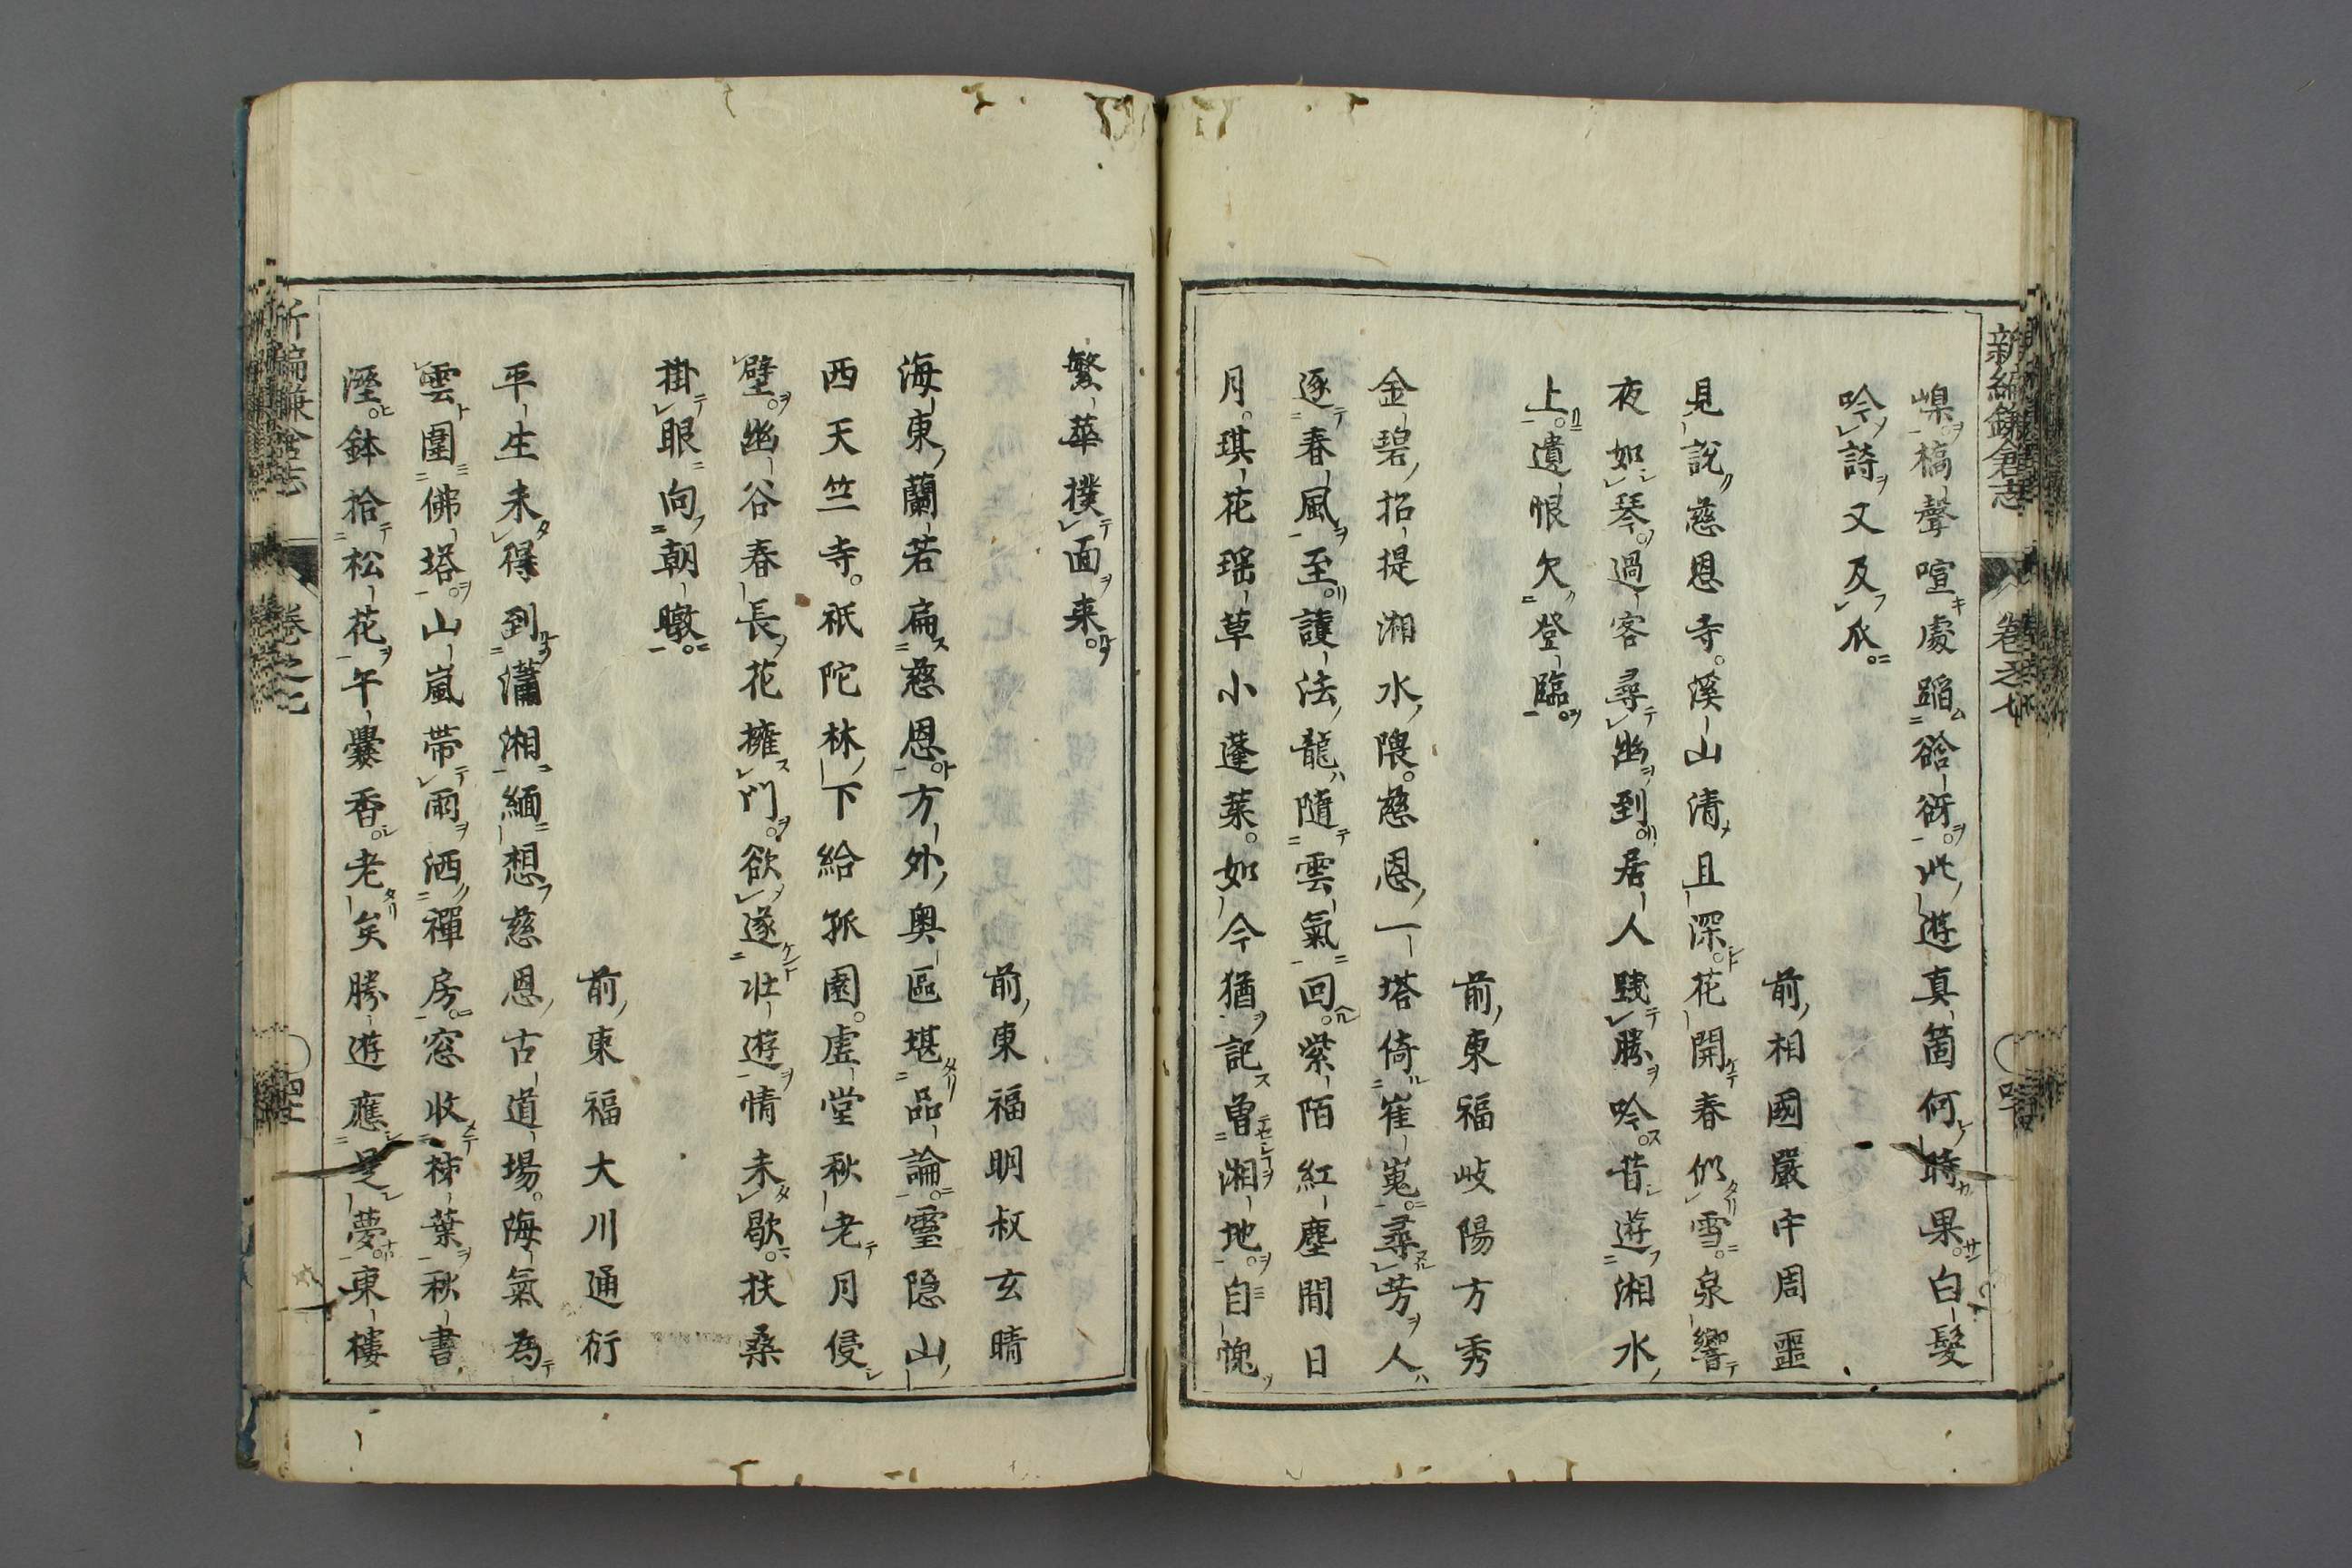 新編鎌倉志 卷之七
嵲槁聲喧處蹈谽谺此遊真箇何時果白髮
吟詩又及瓜
前相國嚴中周噩
見說慈恩寺溪山清且深花開春似雪泉響
夜如琴過客尋幽到居人踐勝吟昔遊湘水
上遺恨欠登臨
前東福岐陽方秀
金碧招提湘水隈慈恩一塔倚崔嵬尋芳人
逐春風至護法龍隨雲氣回紫陌紅塵間日
月琪花瑶草小蓬萊如今猶記曾湘地自愧
繁華撲面来
前東福明叔玄晴
海東蘭若扁慈恩方外奥區堪品論靈隐山
西天竺寺祇陀林下給孤園虚堂秋老月侵
壁幽谷春長花擁門欲遂壯遊情未歇扶桑
掛眼向朝暾
前東福大川通衍
平生未得到瀟湘緬想慈恩古道場海氣為
雲圍佛塔山嵐帯雨洒禪房窓收柿葉秋書
溼鉢拾松花午爨香老矣勝遊應是夢東樓
新編鎌倉志 卷之七